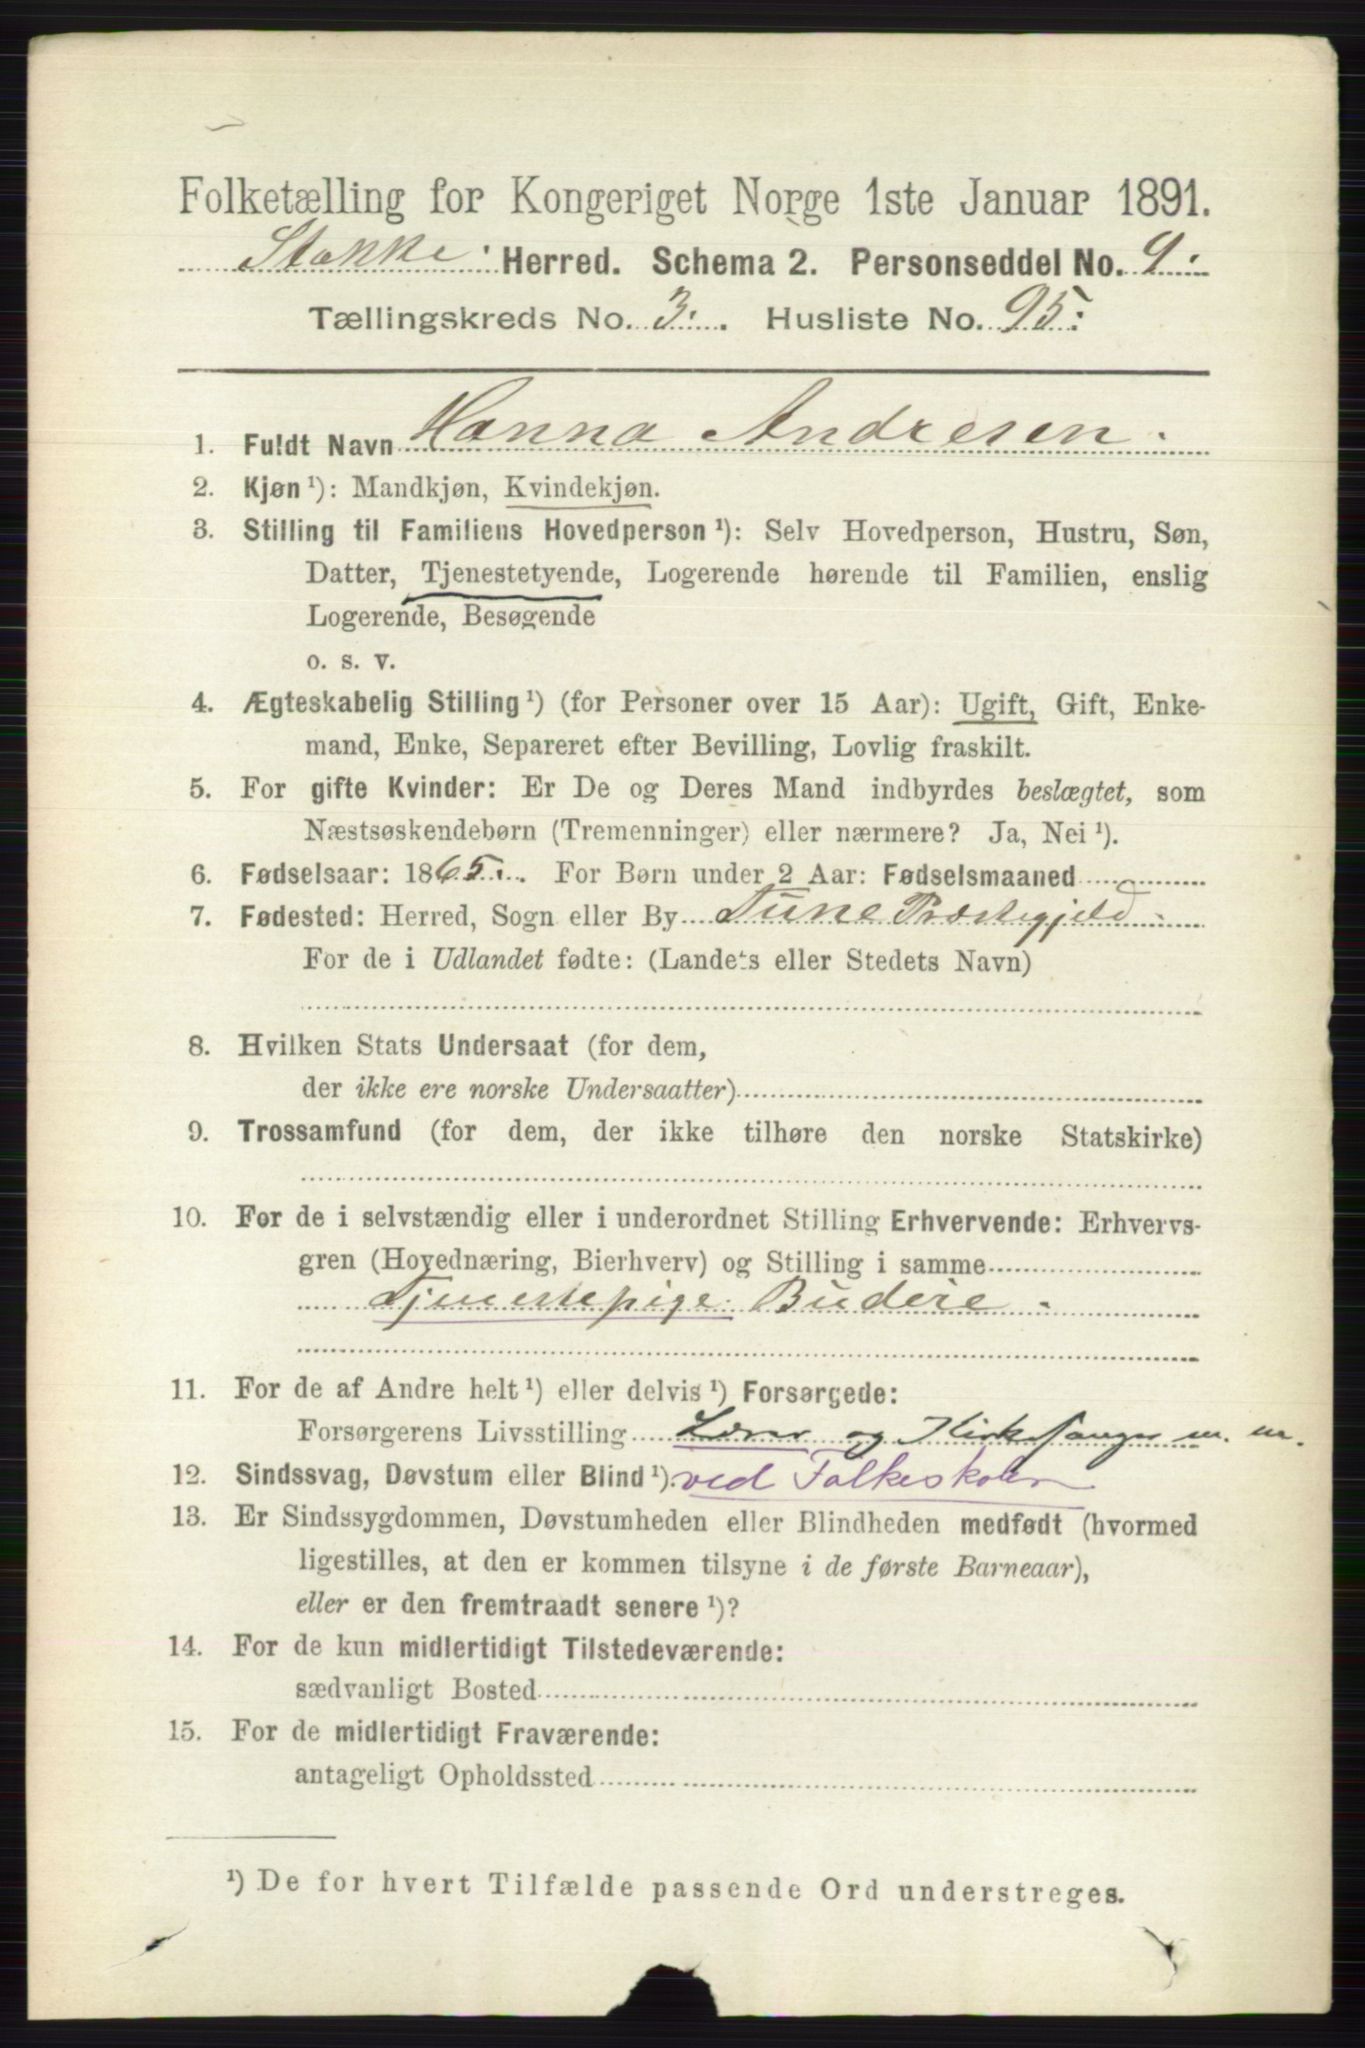 Folketælling for Kongeriget Norge 1ste Januar 1891.
Stokke Herred. Schema 2. Personseddel No. 9.
Tællingskreds No. 3. Husliste No. 95.
1. Fuldt Navn Hanna Andresen.
2. Kjøn ¹): Mandkjøn, Kvindekjøn.
3. Stilling til Familiens Hovedperson ¹): Selv Hovedperson, Hustru, Søn,
Datter, Tjenestetyende, Logerende hørende til Familien, enslig
Logerende, Besøgende
o. s. v.
4. Ægteskabelig Stilling ¹) (for Personer over 15 Aar): Ugift, Gift, Enke-
mand, Enke, Separeret efter Bevilling, Lovlig fraskilt.
5. For gifte Kvinder: Er De og Deres Mand indbyrdes beslægtet, som
Næstsøskendebørn (Tremenninger) eller nærmere? Ja, Nei ¹).
6. Fødselsaar: 1865. For Børn under 2 Aar: Fødselsmaaned
7. Fødested: Herred, Sogn eller By Tune Præstegjeld.
For de i Udlandet fødte: (Landets eller Stedets Navn)
8. Hvilken Stats Undersaat (for dem,
der ikke ere norske Undersaatter)
9. Trossamfund (for dem, der ikke tilhøre den norske Statskirke)
10. For de i selvstændig eller i underordnet Stilling Erhvervende: Erhvervs-
gren (Hovednæring, Bierhverv) og Stilling i samme
Tjenestepige. Budeie.
11. For de af Andre helt ¹) eller delvis ¹) Forsørgede:
Forsørgerens Livsstilling Lærer og Kirkesanger m. m.
12. Sindssvag, Døvstum eller Blind ¹). ved Folkeskolen
13. Er Sindssygdommen, Døvstumheden eller Blindheden medfødt (hvormed
ligestilles, at den er kommen tilsyne i de første Barneaar),
eller er den fremtraadt senere ¹)?
14. For de kun midlertidigt Tilstedeværende:
sædvanligt Bosted
15. For de midlertidigt Fraværende:
antageligt Opholdssted
¹) De for hvert Tilfælde passende Ord understreges.